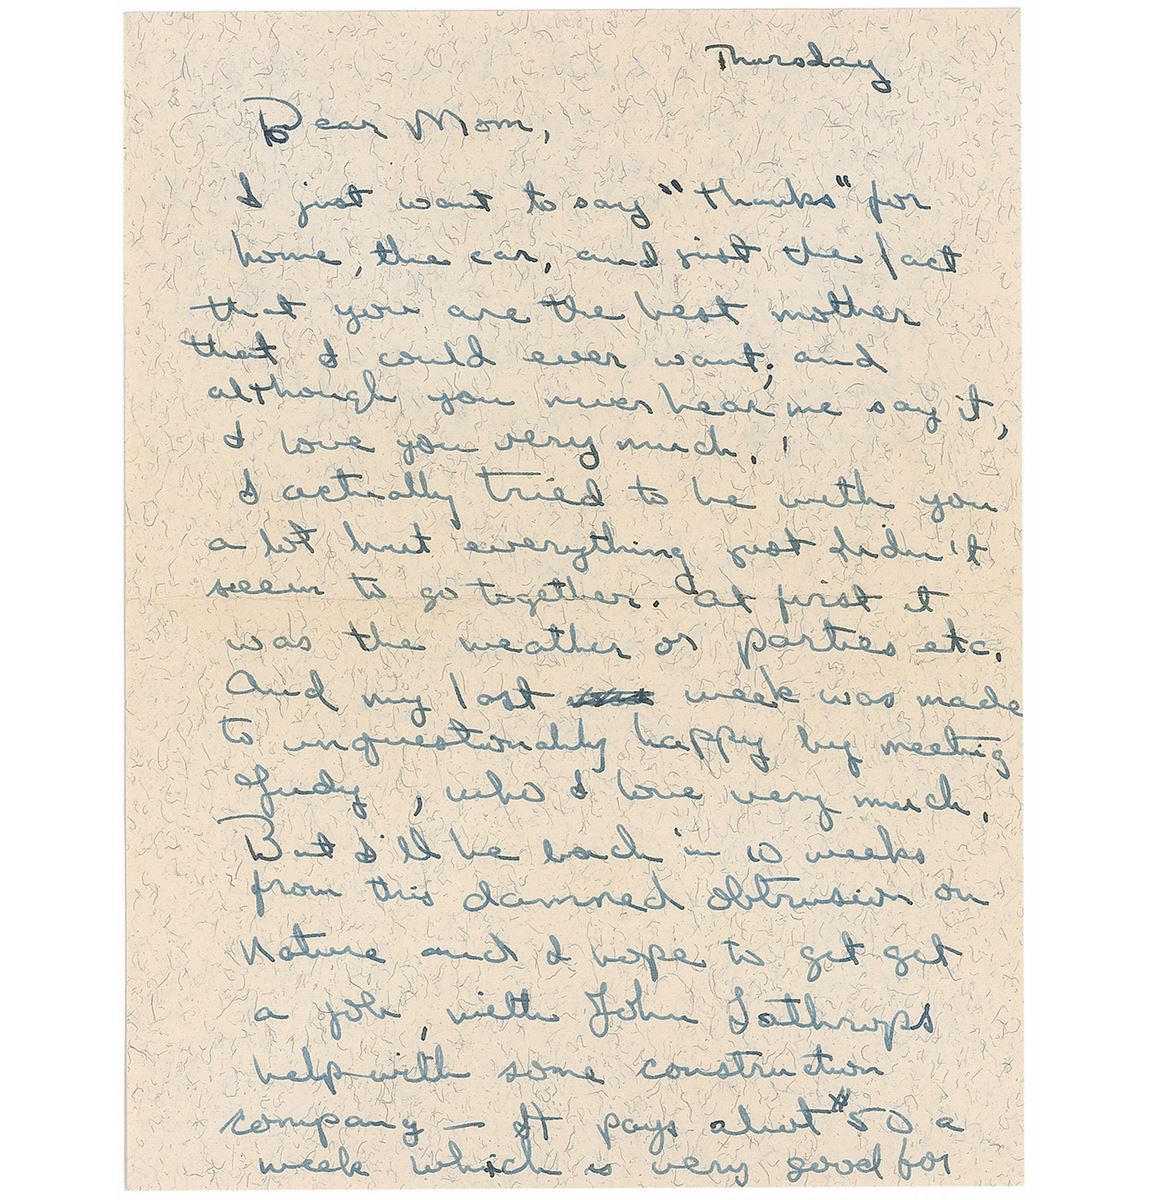 Thursday
Dear Mom,
I just want to say "thanks" for
home, the car, and just the fact
that you are the best mother
that I could ever want; and
although you never hear me say it,
I love you very much.!
I actually tried to be with you
a lot but everything just didn't
seem to go together. at first it
was the weather or parties etc.
And my last week was made
to unquestionably happy by meeting
Judy, who I love very much.
But I'll be back in 10 weeks
from this damned obtrusion on
nature and I hope to get get
a job, with John Lathrops
help with some construction
company — It pays about $50 a
week which is very good for